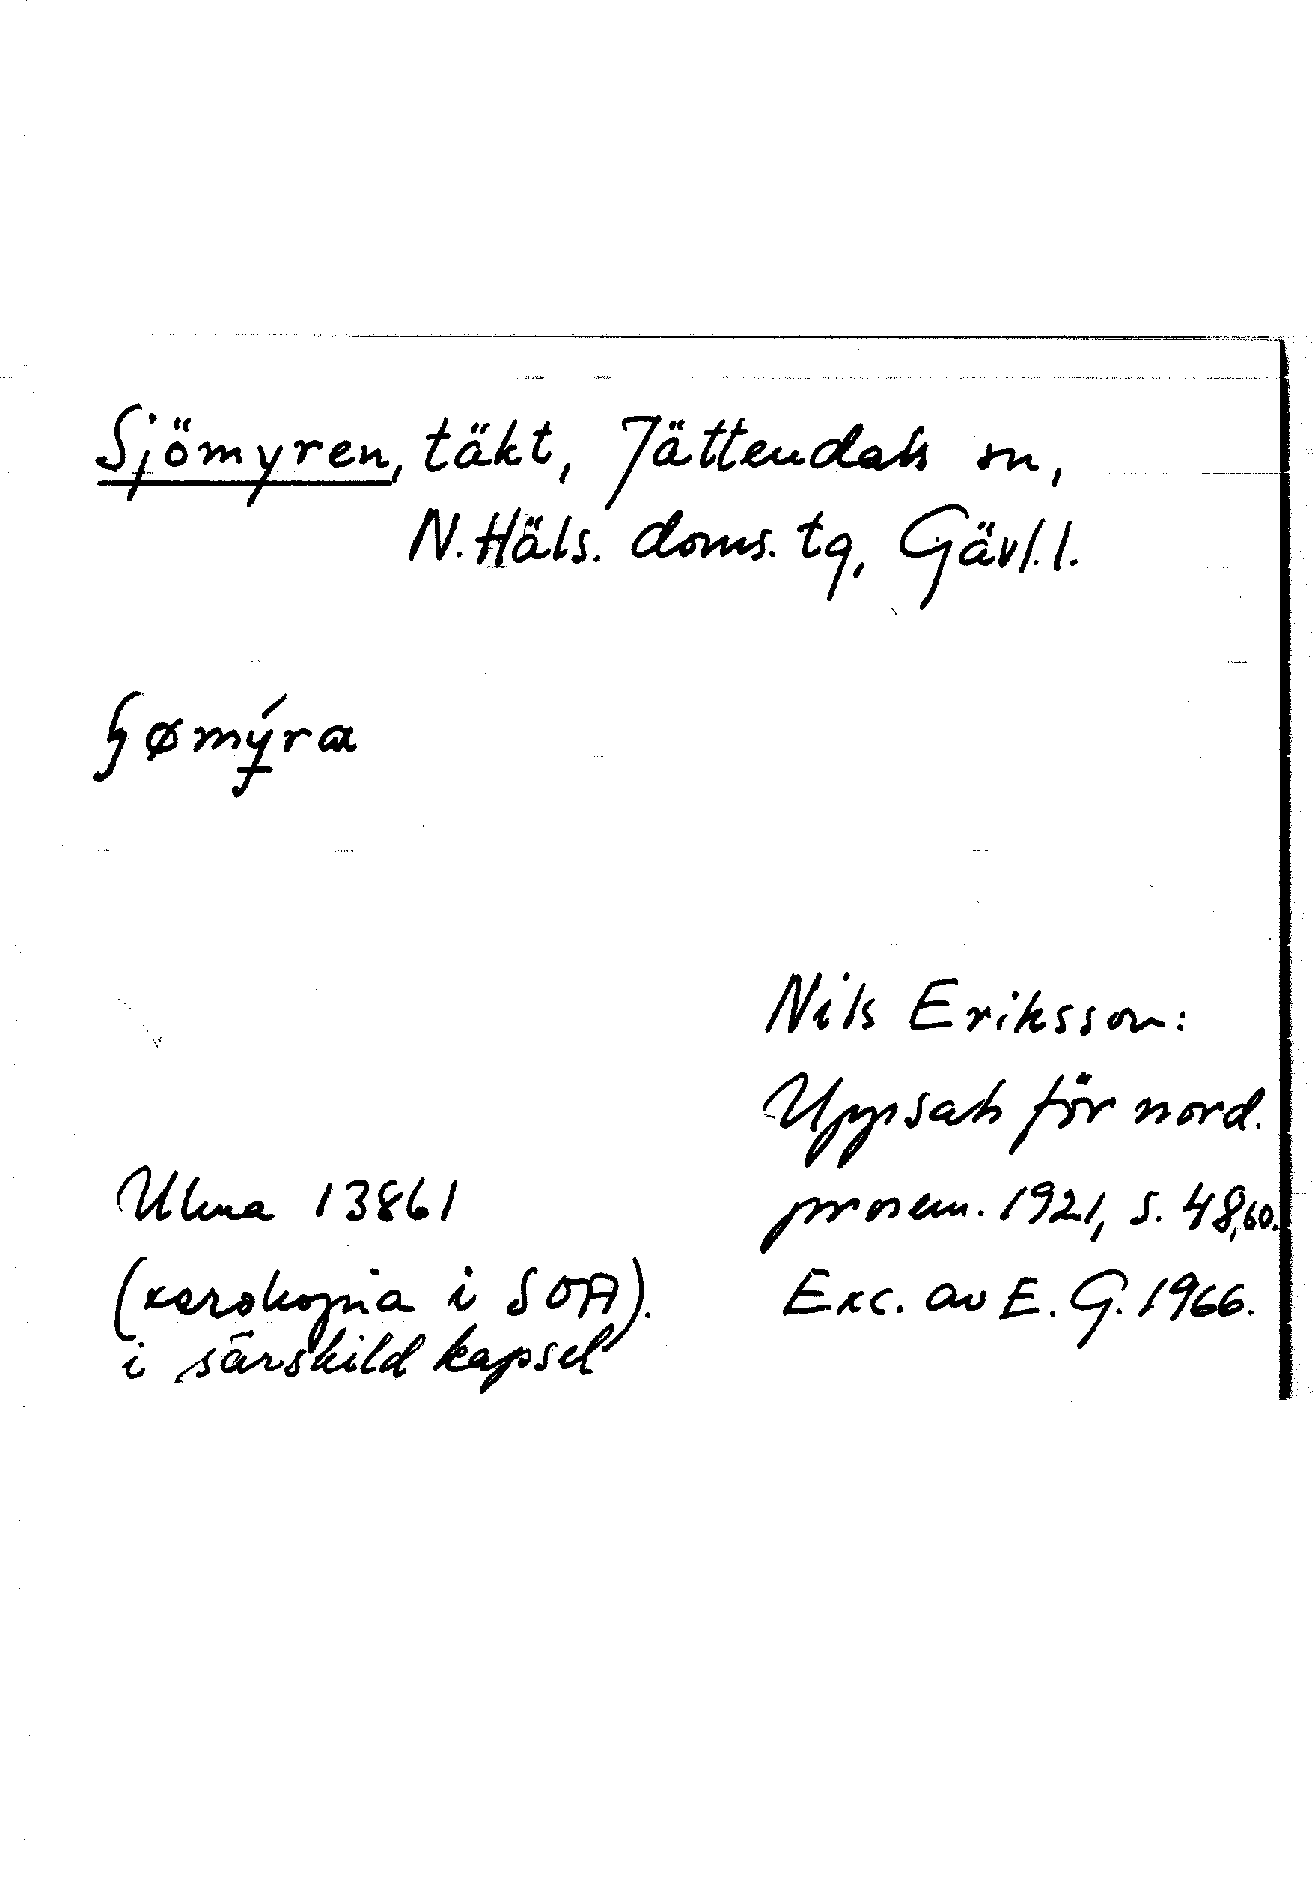 Sjömyren, täkt, Jättendals sn,
N. Häls. doms. tg, Gävl. l.
ɧømýra
Nils Eriksson:
Uppsats för nord.
prosem. 1921, s. 48,60.
Exc. av E. G. 1966.
Ulma 13861
(xeroxkopia i SOA).
i särskild kapsel